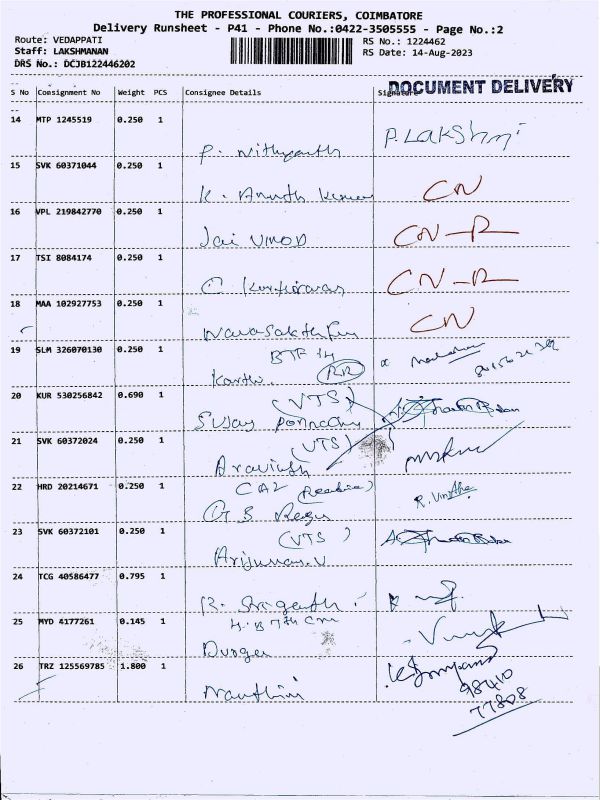 THE PROFESSIONAL COURIERS, COIMBATORE
Delivery Runsheet - P41 - Phone No.:0422-3505555 - Page No.:2
Route: VEDAPPATI RS No.: 1224462
Staff: LAKSHMANAN RS Date: 14-Aug-2023
DRS No.: DCJB122446202
DOCUMENT DELIVERY
S No Consignment No Weight PCS Consignee Details Signature
14 MTP 1245519 0.250 1
P. Nithyanth P. Lakshmi
15 SVK 60371044 0.250 1
K. Ananth Kumar CN
16 VPL 219842770 0.250 1
Jai Vinod CN-R
17 TSI 8084174 0.250 1
C CN-R
18 MAA 102927753 0.250 1
CN
19 SLM 326070130 0.250 1 BTF 14
Karthi. RR
20 KUR 530256842 0.690 1 (VTS)
Sujay
21 SVK 60372024 0.250 1 (VTS)
Aravinth
22 HRD 20214671 0.250 1
G B
23 SVK 60372101 0.250 1 (VTS)
Arjunan.V
24 TCG 40586477 0.795 1
25 MYD 4177261 0.145 1
Durga
26 TRZ 125569785 1.800 1
Nanthini 98410
77808